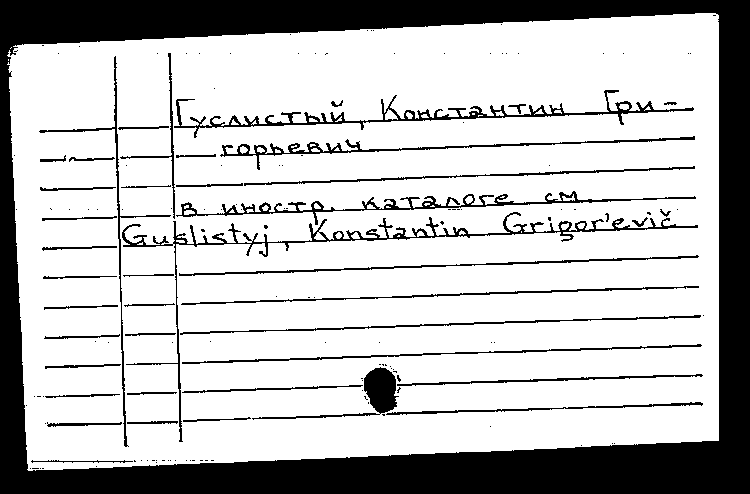 Гуслистый, Константин Гри-
горьевич
в иностр. каталоге см.
Guslistyj, Konstantin Grigor'evič